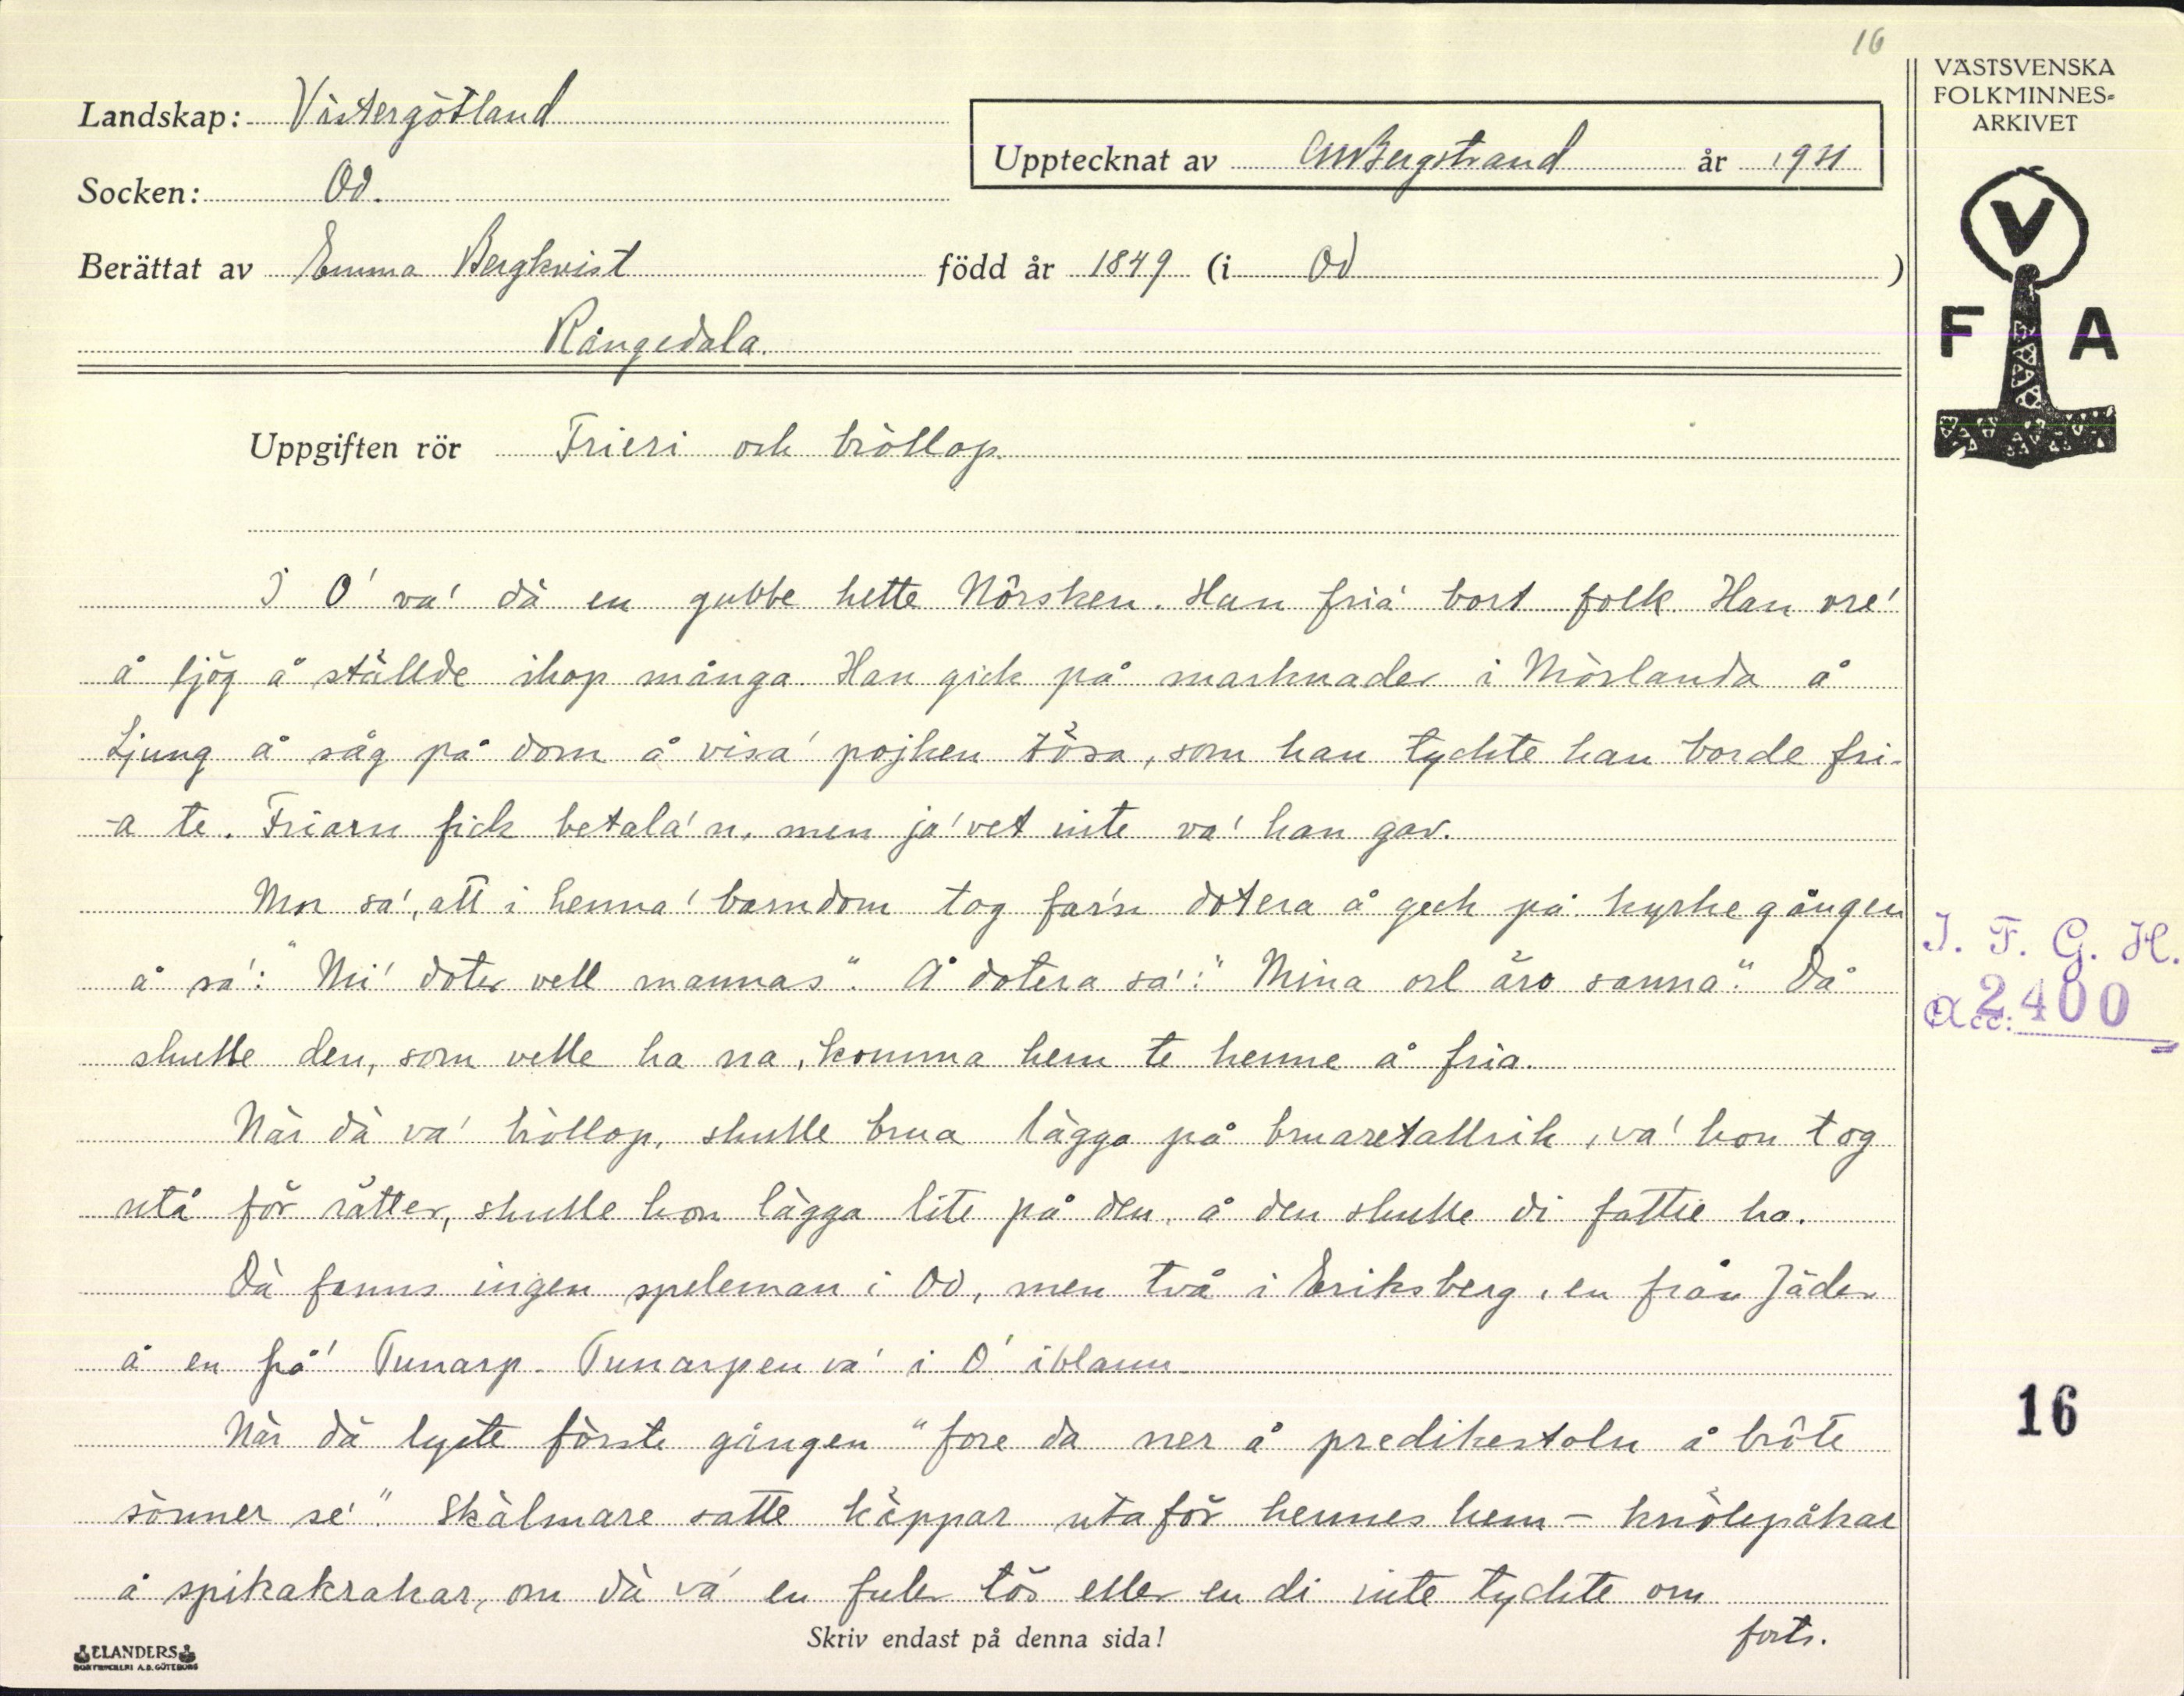 16
VÄSTSVENSKA
FOLKMINNES-
ARKIVET
Landskap: Västergötland
Upptecknat av CMBergstrand år 1931
Socken: Od.
Berättat av Emma Bergkvist född år 1849 (i Od )
Rångedala.
V
F A
Uppgiften rör Frieri och bröllop.
I O' va' dä en gubbe hette Nôrsken. Han fria' bort folk. Han ore'
å ljög å ställde ihop många. Han gick på marknader i Mörlanda å
Ljung å såg på dom å visa' pojken tösa, som han tyckte han borde fri-
-a te. Friarn fick betala'n, men ja' vet inte va' han gav.
Mor sa', att i henna' barndom tog far'n dotera å geck på kyrkegången
å sa': "Mi' doter vell mannas". Å dotera sa': "Mina orl äro sanna". Då
skulle den, som velle ha na, komma hem te henne å fria.
När dä va' bröllop, skulle brua lägga på bruaretallrik, va' hon tog
utå för rätter, skulle hon lägga lite på den, å den skulle di fattie ha.
Dä fanns ingen speleman i Od, men två i Eriksberg, en från Jäder
å en frå' Tunarp. Tunarpen va' i O' iblann.
När dä lyste förste gången "fore da ner å predikestoln å bröte
sönner se'." Skälmare satte käppar utaför hennes hem - knölepåkar
å spikakrakar, om dä va' en fuler tös eller en di inte tyckte om
forts.
I. F. G. H.
Acc: 2400
16
Skriv endast på denna sida!
ELANDERS
BOKTRYCKERI A.B. GÖTEBORG